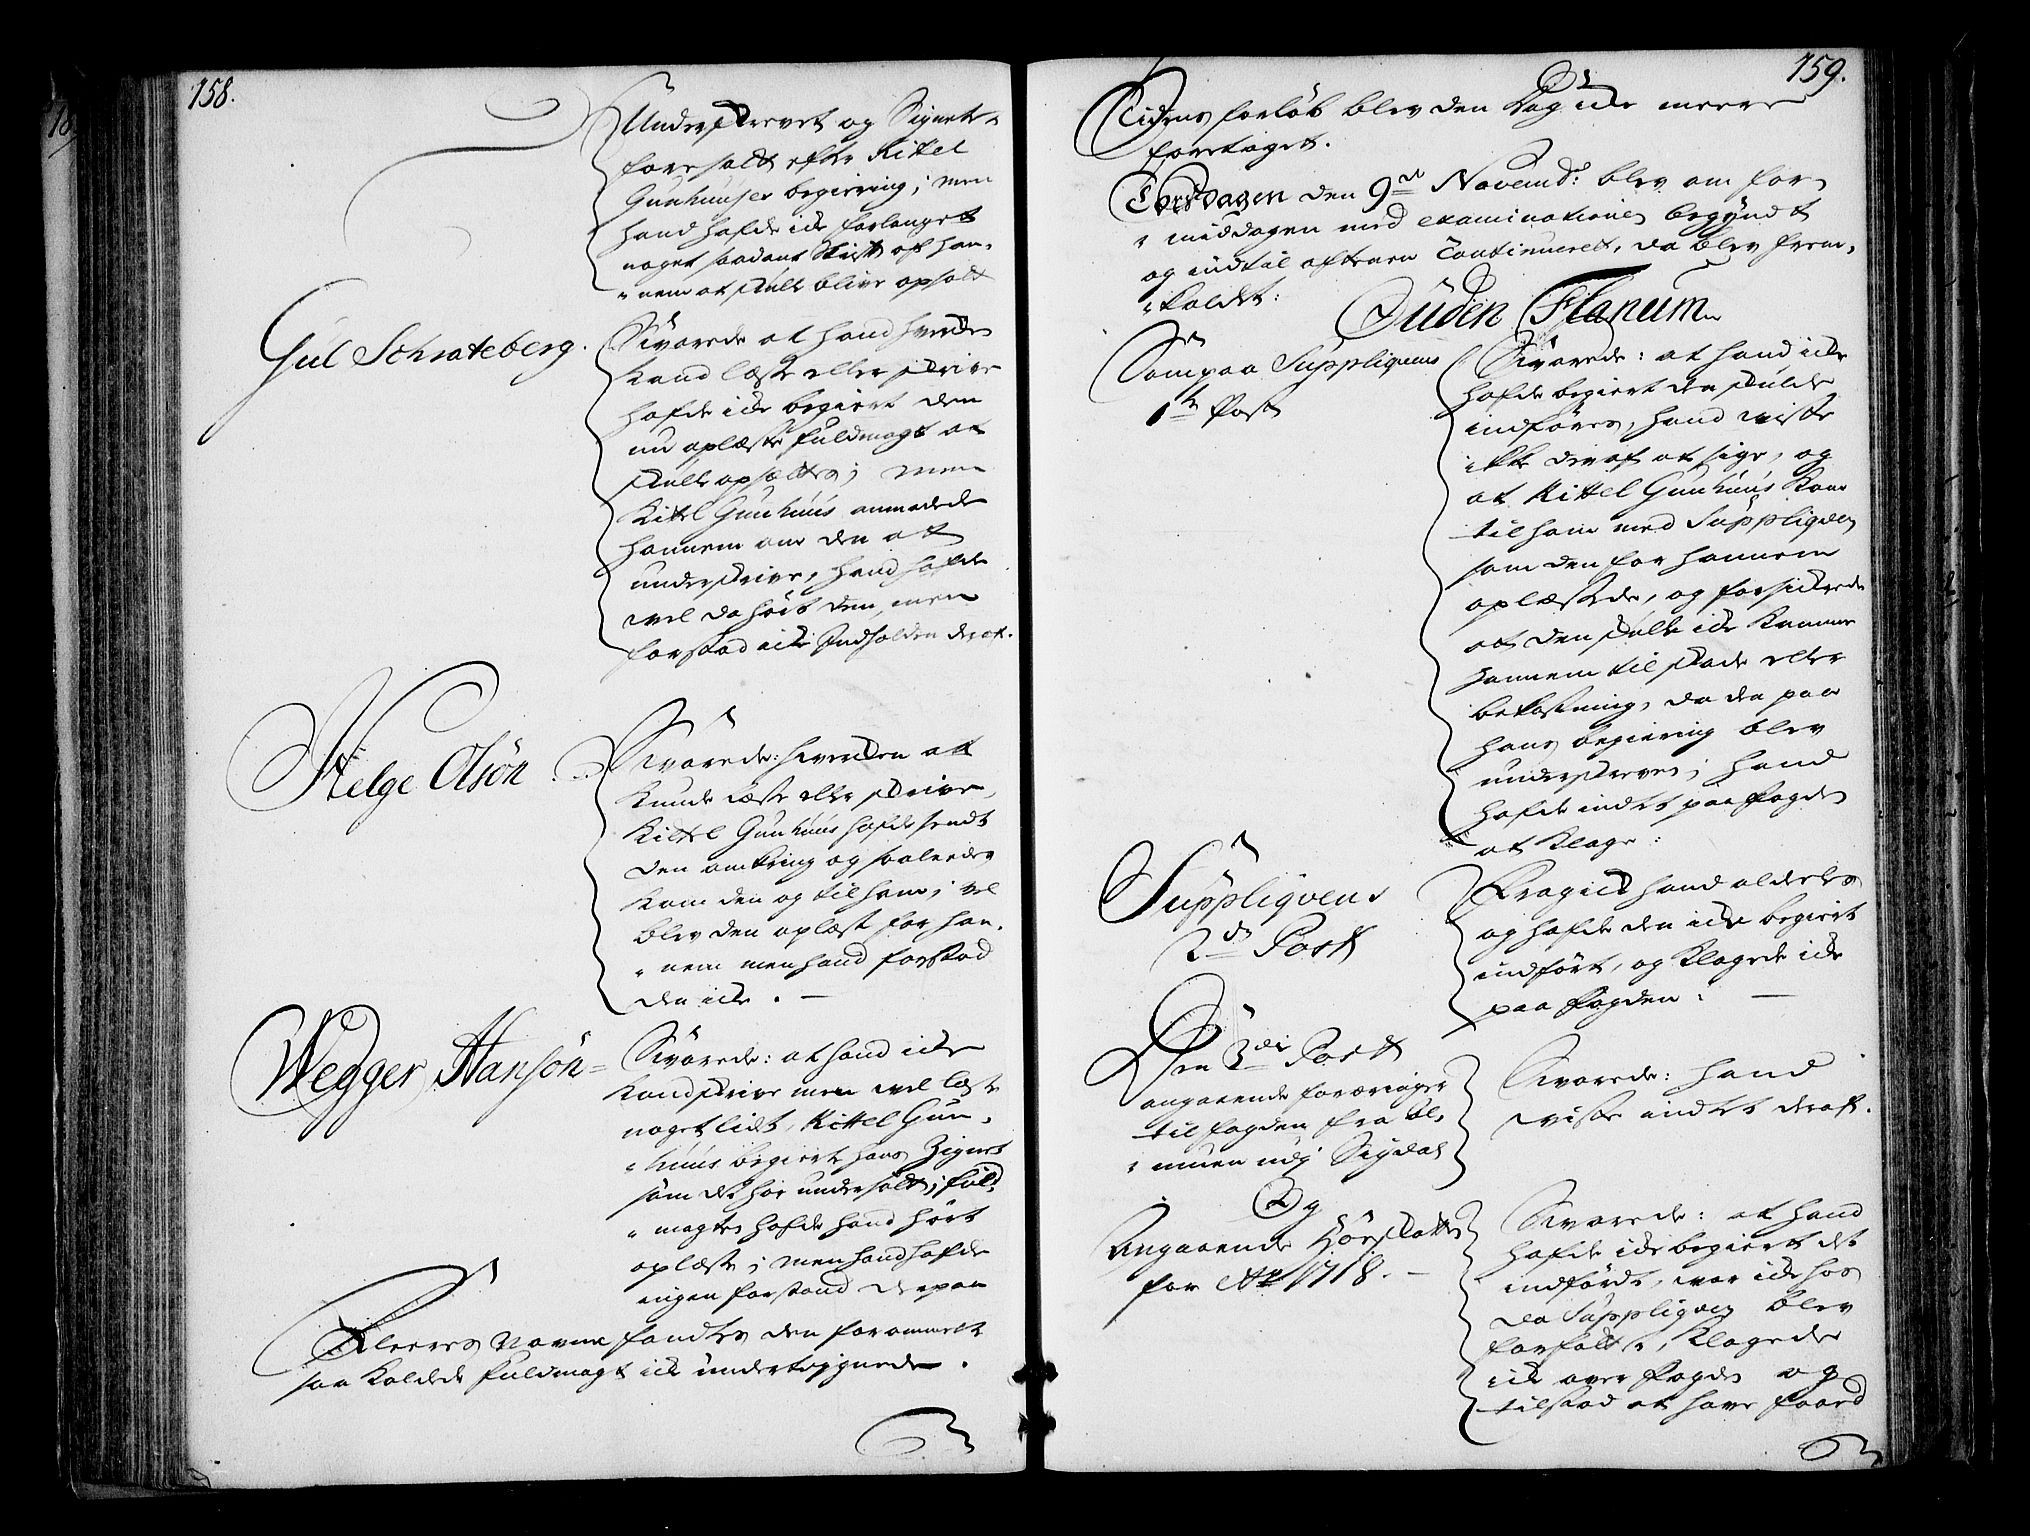 158.
Underskrevet og Signets
foresadt efter Kittel
Gunhuuses begiering; men
hand hafde icke forlanget
noget saadant Skrift af han-
nem at skulle blive opsadt
Gul Schrateberg.
Svarede at hand hverken
kand læse eller skrive
hafde icke begiert den
nu oplæste fuldmagt at
skulle opsættes; men
Kittel Gunhuus anmodede
hannem om den at
underskrive, hand hafde
vel da hört den, men
forstod icke Indholden deraf.
Helge Olsön
Svarede: hverken at
kunde læse eller skrive,
Kittel Gunhuus hafde sendt
den omkring og saaledes
kom den og til ham; vel
blev den oplæst for han-
nem men hand forstod
den icke. —
Wegger Hansön
Svarede: at hand icke
kand skrive men vel læse
noget lidt, Kittel Gun-
huus begierte hans Zignet
som det har undersadt; fuld-
magten hafde hand hört
oplæse; men hand hafde
ingen forstand derpaa
Fleeres Navne fandtes den forommelte
saa kaldede fuldmagt icke undertegnede.
159.
Tidens forlöb blev den Dag icke meere
foretaget.
Torsdagen den 9de Novemb: blev om for-
middagen med examinationen begyndt
og indtil aftenen Continueret, da blev frem-
kaldet:
Guden Flanum
Som paa Suppliqvens
1te Post
Svarede: at hand icke
hafde begiert den skulde
indföres, hand viste
ikke deraf at sige, og
at Kittel Gunhuus kom
til ham med Suppliqven
som den for hannem
oplæste, og forsickrede
at den skulle icke komme
hannem til skade eller
bekostning, da den paa
hans begiering blev
underskreven; hand
hafde indtet paa fogden
at klage:
Suppliqvens
2den Post
Fragick hand aldeles
og hafde den icke begiert
indfört, og klagede icke
paa fogden. —
Den 3die Post
angaaende foræringer
til fogden fra Al-
muen udj Sigdal
Svarede: hand
viste indtet deraf.
Og
Angaaende Hörskatten
for Ao 1718. —
Svarede: at hand
hafde icke begiert det
indfördt, var icke hos
da Suppliqven blev
forfattet, klagede
icke over fogden og
tilstod at have faaed